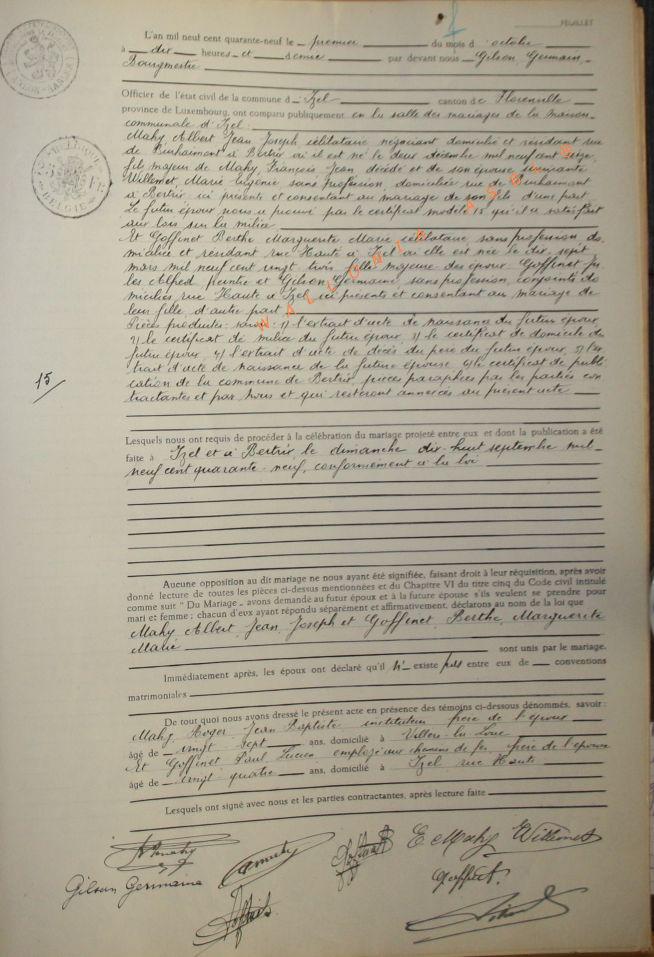 FEUILLET
L'an mil neuf cent quarante-neuf le premier du mois d' octobre
à dix heures et demie par devant nous Gilson Germain
Bourgmestre
Officier de l'état civil de la commune d' Izel canton de Florenville
province de Luxembourg, ont comparu publiquement en la salle des mariages de la maison
communale d'Izel:
Mahy Albert Jean Joseph célibataire négociant domicilié et résidant rue
de Burhaimont à Bertrix où il est né le deux décembre mil neuf cent seize
fils majeur de Mahy François Jean décédé et de son épouse survivante
Willemet Marie Eugénie sans profession, domiciliée rue de Burhaimont
à Bertrix ici présente et consentant au mariage de son fils d'une part
Le futur époux nous a prouvé par le certificat modèle 15 qu'il a satisfait
aux lois sur la milice
Et Goffinet Berthe Marguerite Marie célibataire sans profession do
miciliée et résidant rue Haute à Izel où elle est née le dix sept
mars mil neuf cent vingt trois fille majeure des époux Goffinet Ju
les Alfred peintre et Gilson Germaine sans profession, conjoints do
miciliés rue Haute à Izel ici présents et consentant au mariage de
leur fille, d'autre part
Pièces produites savoir 1) l'extrait d'acte de naissance du futur époux
2) le certificat de milice du futur époux 3) le certificat de domicile du
futur époux, 4) l'extrait d'acte de décès du père du futur époux, 5) l'ex
trait d'acte de naissance de la future épouse 6) le certificat de publi
cation de la commune de Bertrix, pièces paraphées par les parties con
tractantes et par nous et qui resteront annexées au présent acte
15
Lesquels nous ont requis de procéder à la célébration du mariage projeté entre eux et dont la publication a été
faite à Izel et à Bertrix le dimanche dix-huit septembre mil
neuf cent quarante-neuf, conformément à la loi
Aucune opposition au dit mariage ne nous ayant été signifiée, faisant droit à leur réquisition, après avoir
donné lecture de toutes les pièces ci-dessus mentionnées et du Chapitre VI du titre cinq du Code civil intitulé
comme suit " Du Mariage „ avons demandé au futur époux et à la future épouse s'ils veulent se prendre pour
mari et femme ; chacun d'eux ayant répondu séparément et affirmativement, déclarons au nom de la loi que
Mahy Albert Jean Joseph et Goffinet Berthe Marguerite
Marie sont unis par le mariage.
Immédiatement après, les époux ont déclaré qu'il n' existe pas entre eux de conventions
matrimoniales
De tout quoi nous avons dressé le présent acte en présence des témoins ci-dessous dénommés, savoir :
Mahy Roger Jean Baptiste instituteur frère de l'époux
âgé de vingt sept ans, domicilié à Villers-la-Loue
Et Goffinet Paul Lucien employé aux chemins de fer frère de l'épouse
âgé de vingt quatre ans, domicilié à Izel rue Haute
Lesquels ont signé avec nous et les parties contractantes, après lecture faite
E Mahy Willemet
Gilson Germaine Goffinet